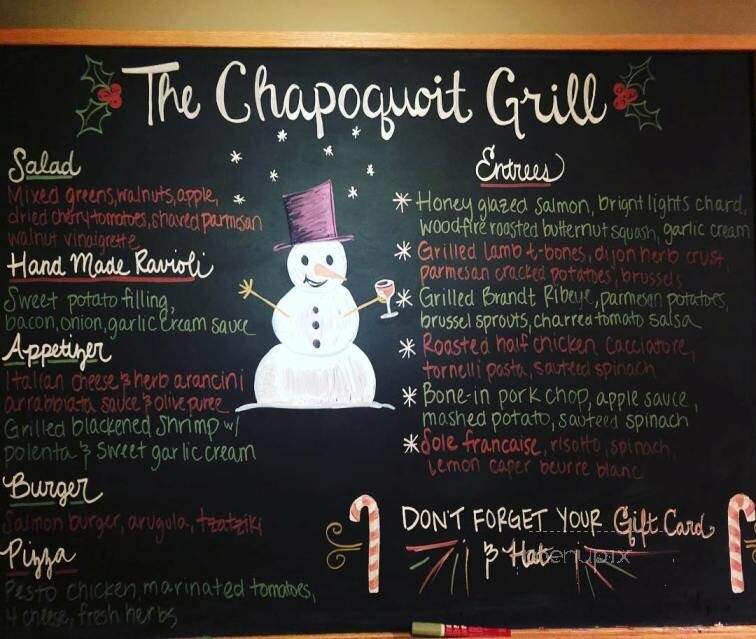 The Chapoquoit Grill
Salad
Mixed greens, walnuts, apple,
dried cherry tomatoes, shaved parmesan
walnut vinaigrette
Hand Made Ravioli
Sweet potato filling,
bacon, onion, garlic cream sauce
Appetizer
Italian cheese & herb arancini
arrabbiata sauce & olive puree
Grilled blackened shrimp w/
polenta & sweet garlic cream
Burger
Salmon burger, arugula, tzatziki
Pizza
Pesto chicken, marinated tomatoes,
4 cheese, fresh herbs
Entrees
* Honey glazed salmon, bright lights chard,
woodfire roasted butternut squash, garlic cream
* Grilled lamb t-bones, dijon herb crust,
parmesan cracked potatoes, brussels
* Grilled Brandt Ribeye, parmesan potatoes,
brussel sprouts, charred tomato salsa
* Roasted half chicken cacciatore,
tornelli pasta, sautéed spinach
* Bone-in pork chop, apple sauce,
mashed potato, sautéed spinach
* Sole francaise, risotto, spinach,
lemon caper beurre blanc
DON'T FORGET YOUR Gift Cards
& Hats
menupix